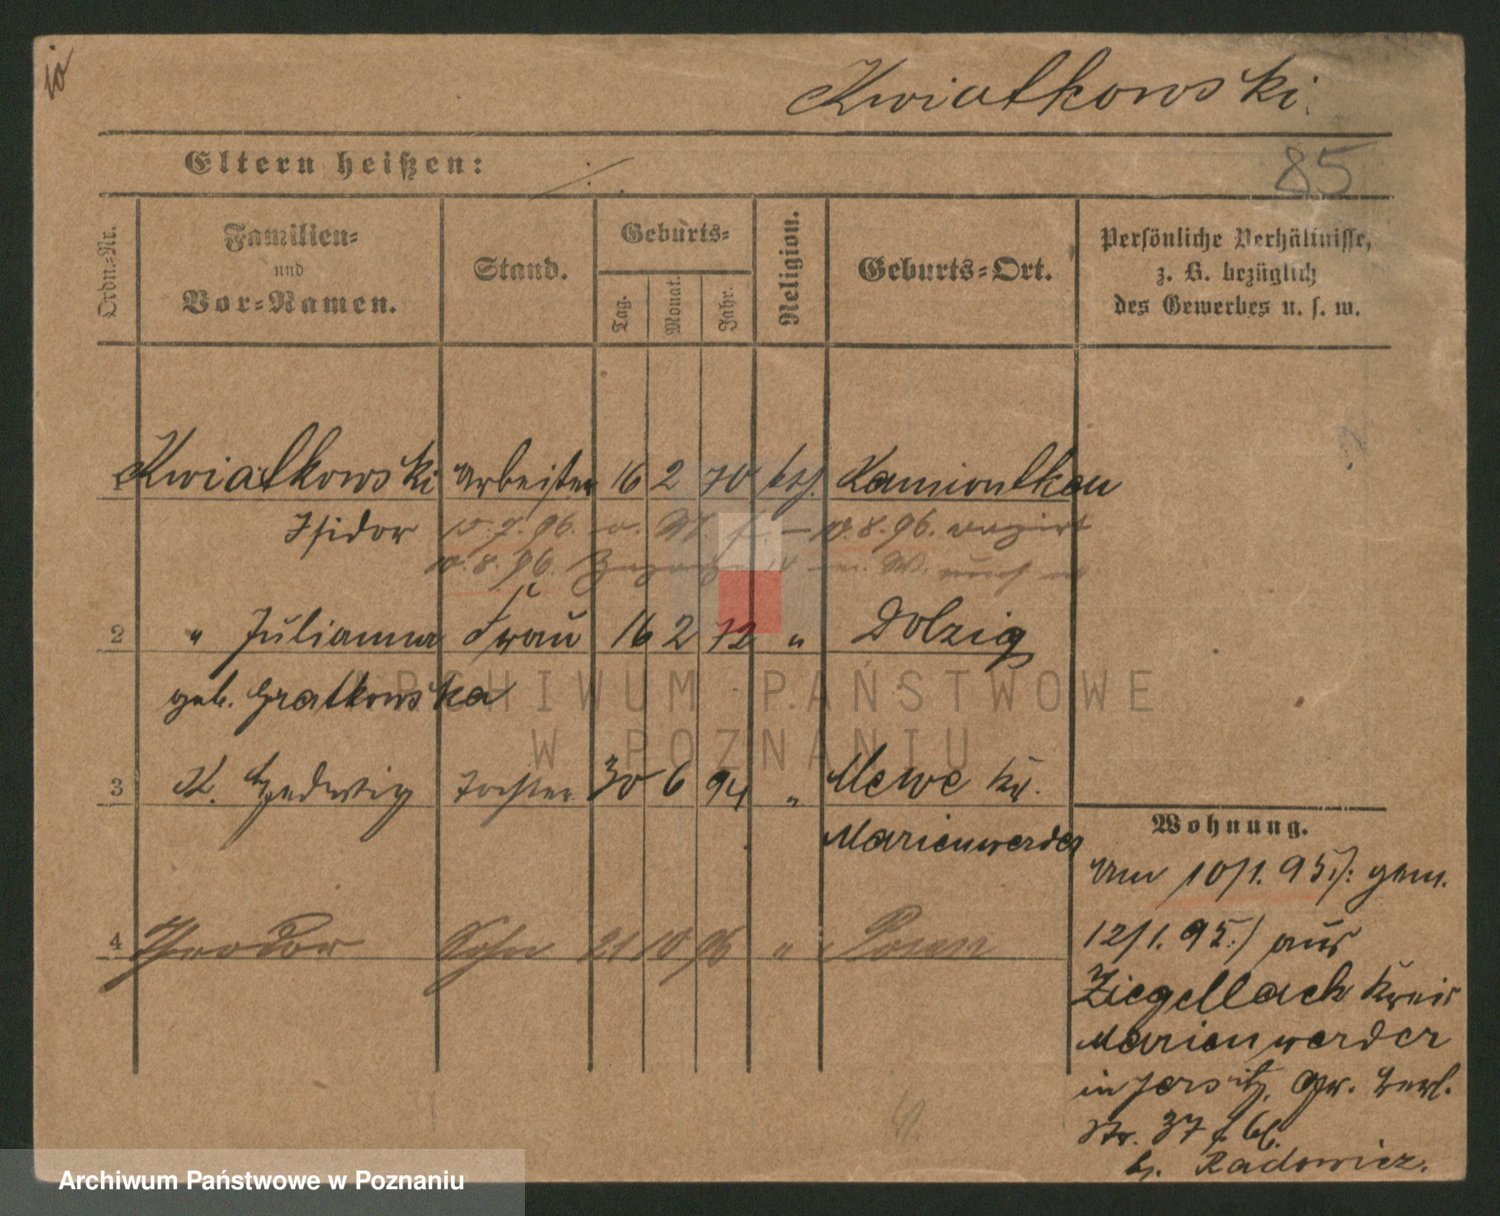 Kwiatkowski.
85
Eltern heißen: ·/.
Ordn.-Nr.
Familien-
und
Vor-Namen.
Stand.
Geburts-
Tag.
Monat.
Jahr.
Religion.
Geburts-Ort.
Persönliche Verhältnisse,
z. B. bezüglich
des Gewerbes u. s. w.
1 Kwiatkowski Arbeiter 16 2 70 kth. Kamiontken
Isidor 15.7.96. a. W. 10.8.96.
10.8.96. W.
2 " Julianna Frau 16 2 72 " Dolzig
geb. Gratkowska
3 K. Hedwig Tochter 30 6 94 " Mewe Kr.
Marienwerder
4 Theodor Sohn 21 10 96 " Posen
Wohnung.
Am 10/1. 95 /: gem.
12/1. 95 :/ aus
Ziegellack Kreis
Marienwerder
in Jersitz, Gr. Berl.
Str. 37
b. Radowicz.
ARCHIWUM PAŃSTWOWE
W POZNANIU
Archiwum Państwowe w Poznaniu